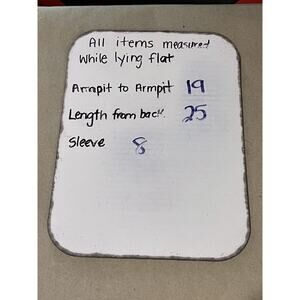 All items measured
while lying flat
Armpit to Armpit 19
Length from back 25
Sleeve 8